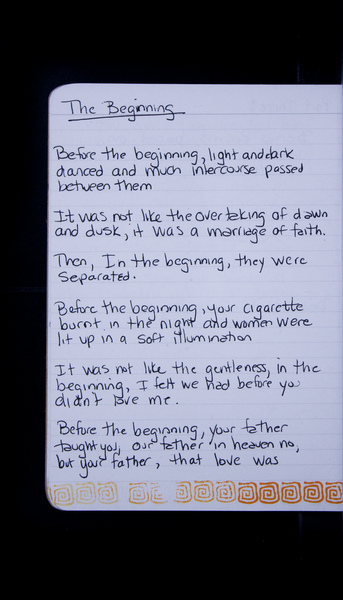 The Beginning
Before the beginning, light and dark
danced and much intercourse passed
between them
It was not like the over taking of dawn
and dusk, it was a marriage of faith.
Then, In the beginning, they were
separated.
Before the beginning, your cigarette
burnt in the night and women were
lit up in a soft illumination
It was not like the gentleness, in the
beginning, I felt we had before you
didn't love me.
Before the beginning, your father
taught you, our father in heaven no,
but your father, that love was